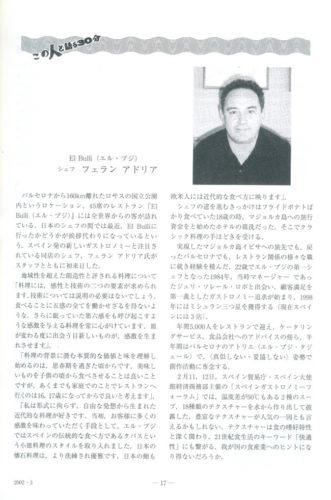 この人と語る30分
El Bulli（エル・ブジ）
シェフ フェラン アドリア
バルセロナから160km離れたロサスの国立公園
内というロケーション、45席のレストラン「El
Bulli（エル・ブジ）」には全世界からの客が訪れ
ている。日本のシェフの間では最近、El Bulliに
行ったかどうかが挨拶代わりになっているとい
う、スペイン発の新しいガストロノミーと注目さ
れている同店のシェフ、フェラン アドリア氏が
スタッフとともに初来日した。
地域性を超えた創造性と評される料理について
「料理には、感性と技術の二つの要素が求められ
ます。技術については説明の必要はないでしょう。
食べることに五感の全てを働かせざるを得ないよ
うな、さらに眠っていた第六感をも呼び起こすよ
うな感激を与える料理を常に心がけています。皿
が変わる度に出会う目新しいものが、感激を生ま
れさせます。」
「料理の背景に潜む本質的な価値と味を理解し
始めるのは、思春期を過ぎた頃からです。美味し
いものを子供の頃から食べさせることは良いこと
ですが、あくまでも家庭でのことでレストランへ
行くのは16、17歳になってからで良いと考えます」。
「私は形式に拘らず、自由な発想から生まれた
近代的な料理が好きです。当初、お客様に多くの
感激を味わっていただく手段として、エル・ブジ
ではスペインの伝統的な食べ方であるタパスとい
う小皿料理のスタイルを取り入れました。日本の
懐石料理は、より洗練され優雅です。日本の鮨も
欧米人には近代的な食べ方に映ります」。
シェフの道を進むきっかけはフライドポテトば
かり食べていた18歳の時、マジョルカ島への旅行
資金をと始めたホテルの皿洗だった。そこでクラ
シック料理の手ほどきを受ける。
実現したマジョルカ島イビサへの旅先でも、戻
ったバルセロナでも、レストラン関係の様々な職
に就き経験を積んだ。22歳でエル・ブジの第一シ
ェフとなった1984年、当時マネージャー であっ
たジュリ・ソレール・ロボと出会い、顧客満足を
第一義としたガストロノミー追求が始まり、1998
年にはミシュラン三つ星を獲得する（現在スペイ
ンには3店）。
年間5,000人をレストランで迎え、ケータリン
グサービス、食品会社へのアドバイスの傍ら、半
年間はバルセロナのアトリエ（エル・ブジ・タジ
ェール）で、〈真似しない・妥協しない〉姿勢で
創作活動に専念する。
2月11、12日、スペイン貿易庁・スペイン大使
館経済商務部主催の「スペインガストロノミーフ
ォーラム」では、温度差が50℃もある2種のスー
プ、18種類のテクスチャーを水から作り出して披
露した。豊富なテクスチャーが人気の一因とも言
えるかもしれない。テクスチャーは食の嗜好特性
と深く関わり、21世紀食生活のキーワード「快適
性」にも繋がる、我が国の食産業へのヒントにな
り得ないだろうか。
2002・3
― 17 ―